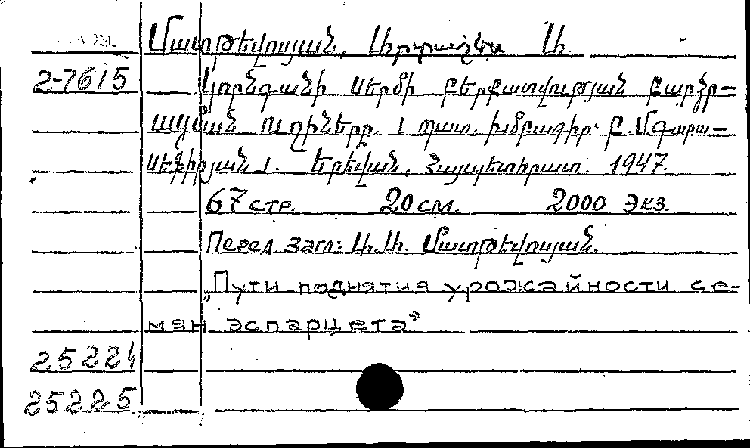 Մատթևոսյան, Արտաշես Ա.
2-7615 Կորնգանի սերմի բերքատվության բարձր-
ացման ուղիները / պատ. խմբագիր
Երևան, Հայպետհրատ. 1947
67 стр. 20 см. 2000 экз.
Перед загл: Ա.Ա. Մատթևոսյան.
„Пути поднятия урожайности се-
мян эспарцета”
25224
25225